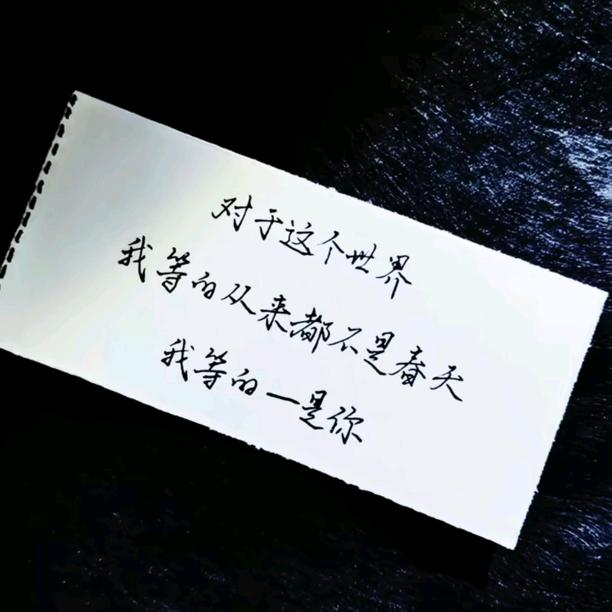 对于这个世界
我等的从来都不是春天
我等的一是你